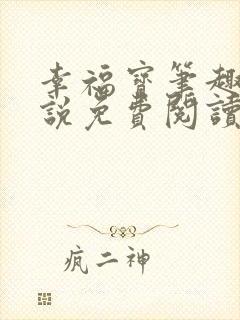 幸福寶筆趣
說免費閱讀
疯二神